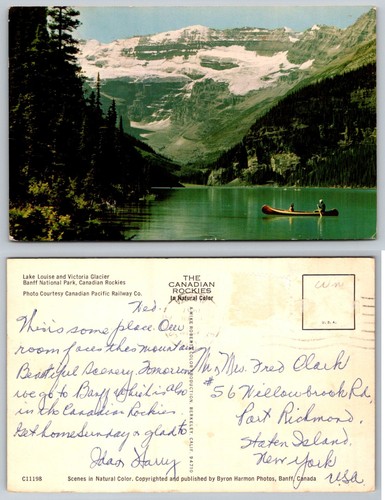 Lake Louise and Victoria Glacier
Banff National Park, Canadian Rockies
Photo Courtesy Canadian Pacific Railway Co.
THE
CANADIAN
ROCKIES
In Natural Color
Wed.
This is some place. Our
room faces this mountain
Beautiful Scenery. Tomorrow
we go to Banff which is also
in the Canadian Rockies.
Get home Sunday & glad to
Ida & Harry
Mr & Mrs. Fred Clark
#56 Willowbrook Rd.
Port Richmond.
Staten Island.
New York
USA
C11198
Scenes in Natural Color. Copyrighted and published by Byron Harmon Photos, Banff, Canada